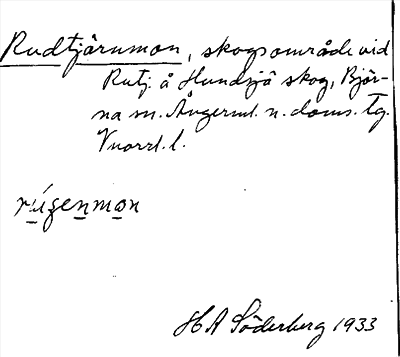 Rudtjärnmon, skogsområde vid
Rutj. å Hundsjö skog, Björ-
na sn. Ångerml. n. doms. tg.
Vnorrl. l.
rúʒenmon
H A Söderberg 1933